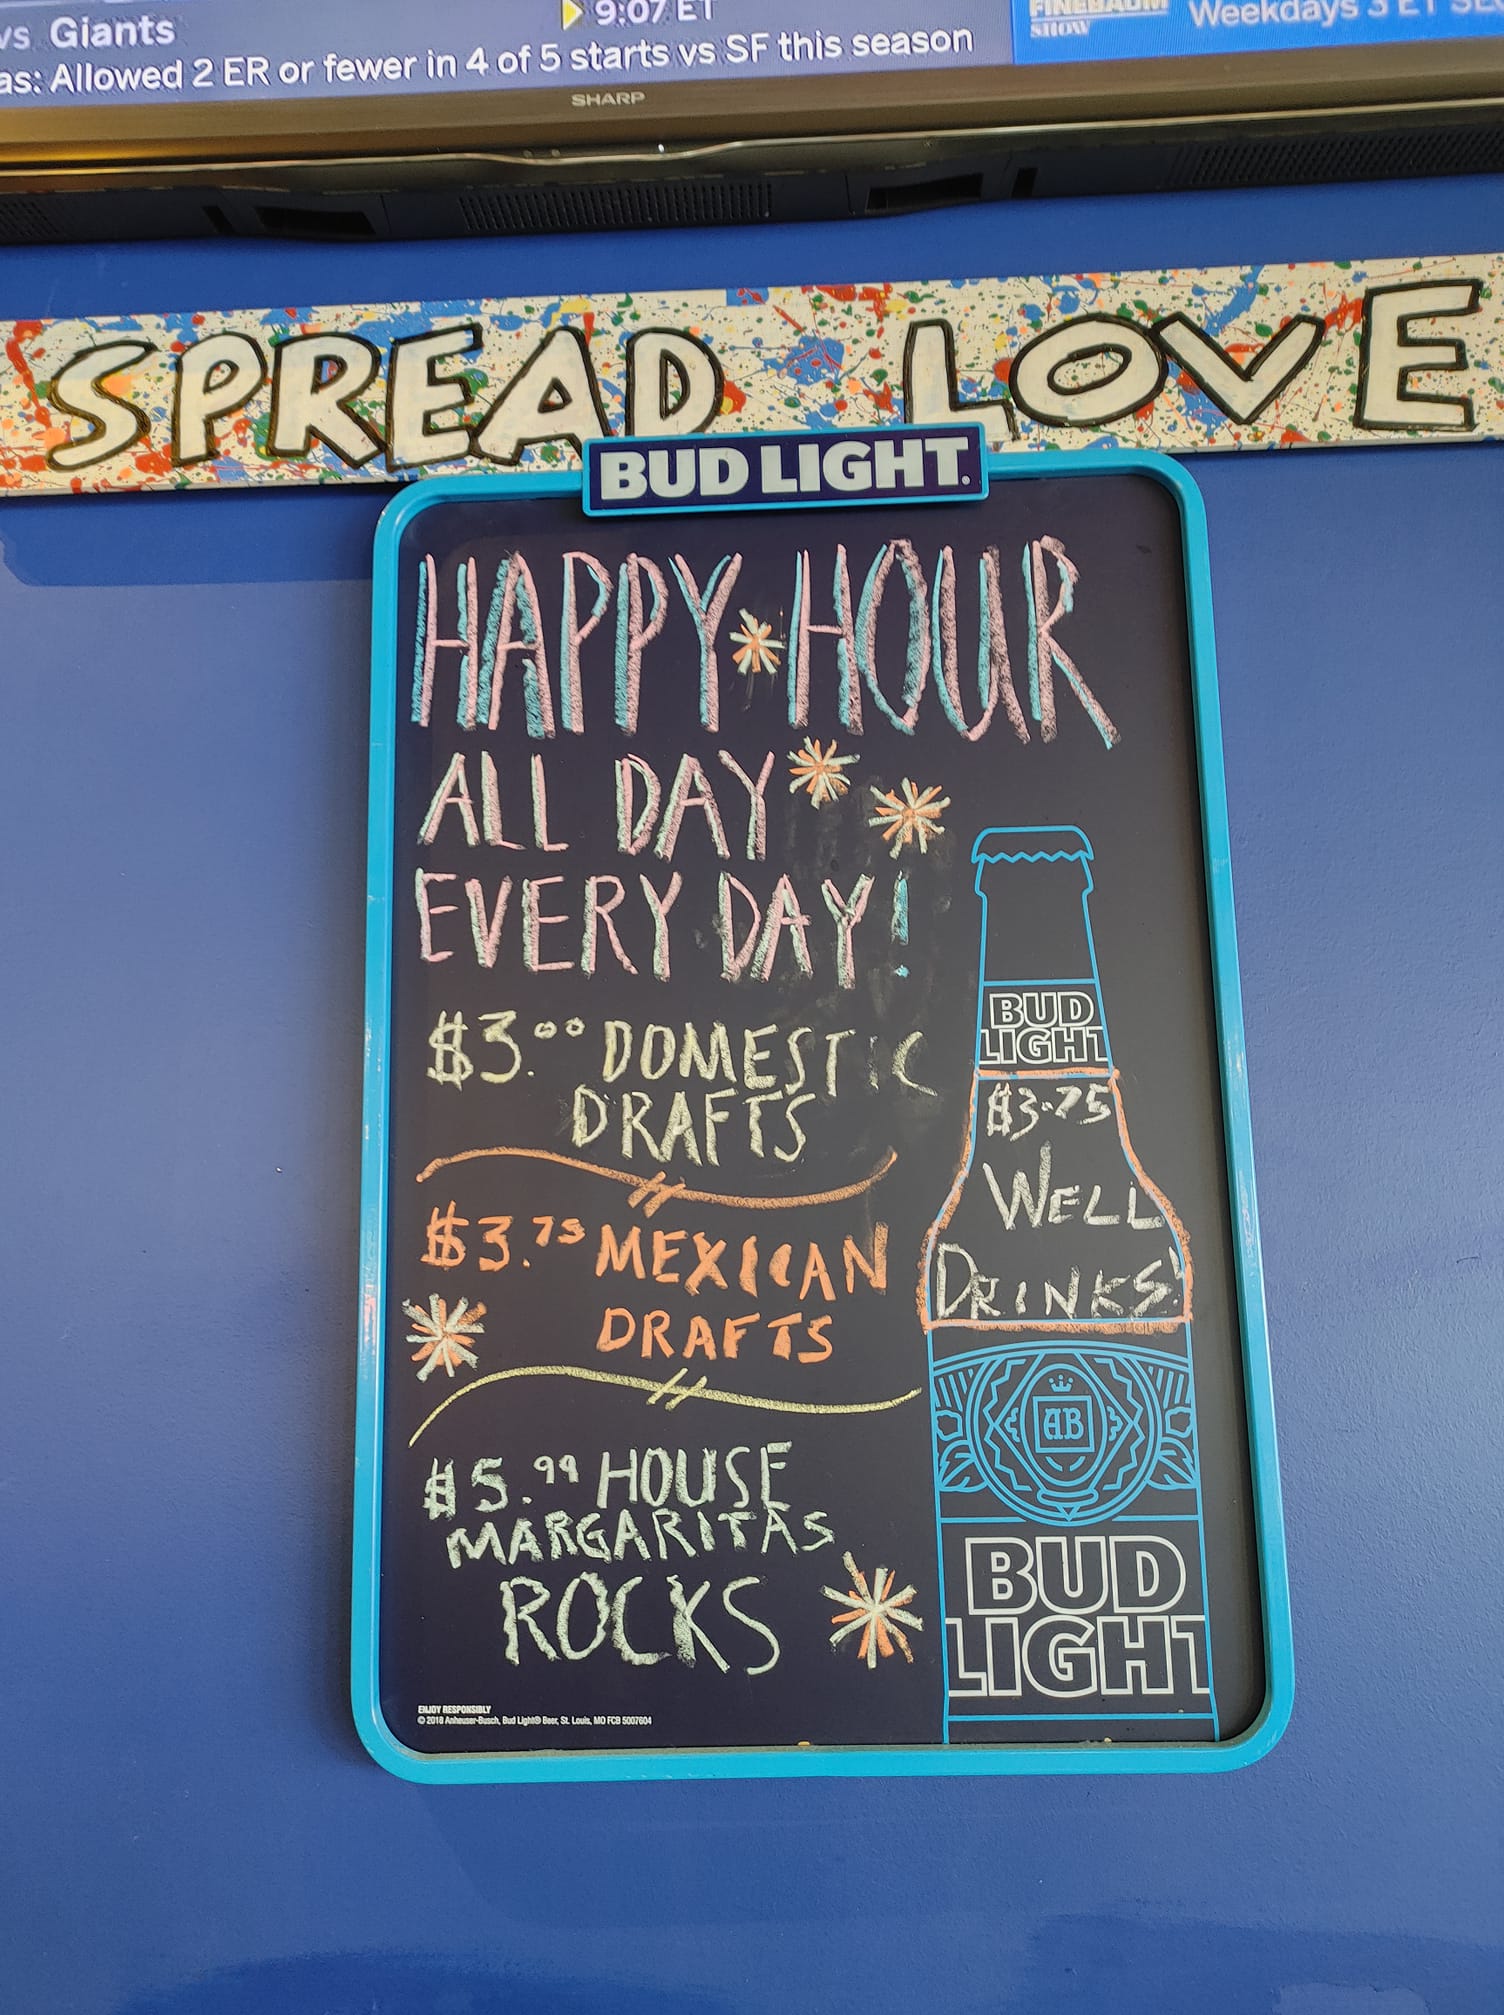 vs Giants
9:07 ET
as: Allowed 2 ER or fewer in 4 of 5 starts vs SF this season
FINEBAUM
SHOW
Weekdays 3 ET
SHARP
SPREAD LOVE
BUD LIGHT®
HAPPY HOUR
ALL DAY
EVERY DAY!
$3.00 DOMESTIC
DRAFTS
$3.75 MEXICAN
DRAFTS
$5.99 HOUSE
MARGARITAS
ROCKS
BUD
LIGHT
$3.75
WELL
DRINKS!
AB
BUD
LIGHT
ENJOY RESPONSIBLY
© 2018 Anheuser-Busch, Bud Light® Beer, St. Louis, MO FCB 5007604